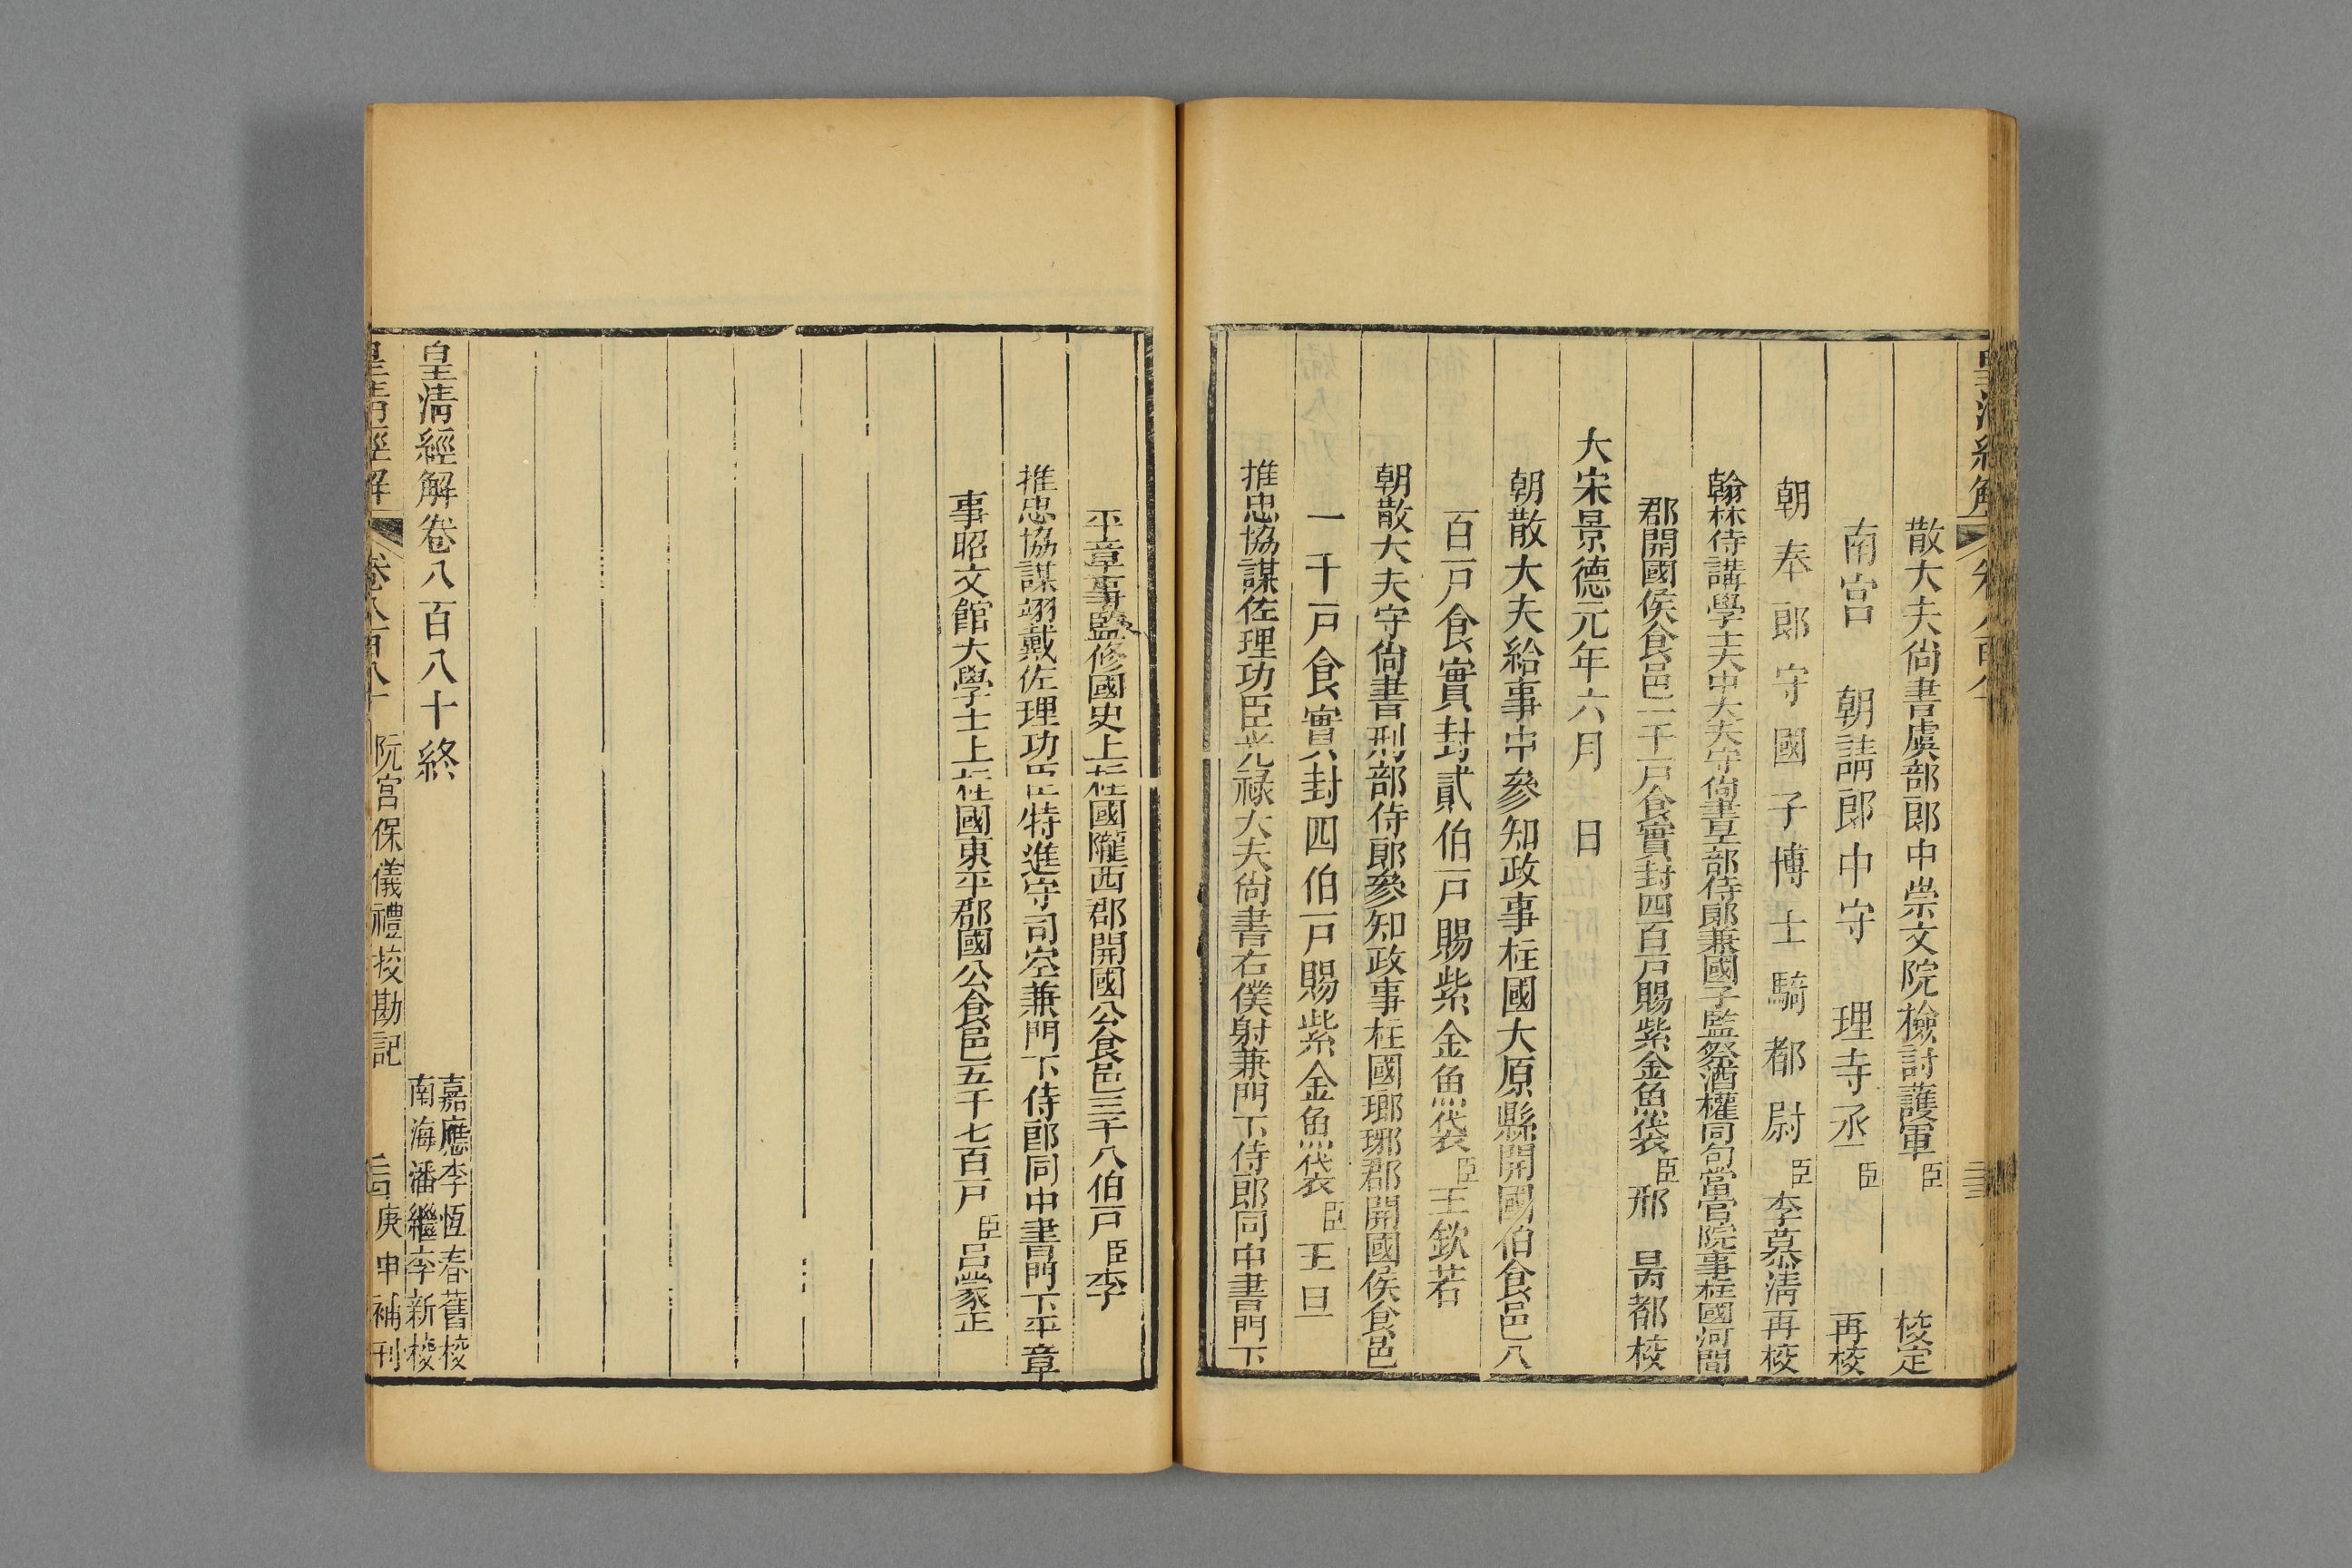 皇清經解 卷八百八十
散大夫尙書虞部郎中崇文院檢討護軍臣 校定
南宮 朝請郎中守 理寺丞臣 再校
朝奉郎守國子博士騎都尉臣李慕淸再校
翰林侍講學士夫中大夫守尙書工部侍郎兼國子監祭酒權同句當官院事柱國河間
郡開國侯食邑一千一戸食實封四百戸賜紫金魚袋臣邢昺都校
大宋景德元年六月 日
朝散大夫給事中參知政事柱國大原縣開國伯食邑八
百戸食實封貳伯戸賜紫金魚袋臣王欽若
朝散大夫守尙書刑部侍郎參知政事柱國瑯琊郡開國侯食邑
一千戸食實封四伯戸賜紫金魚袋臣王旦
推忠協謀佐理功臣光祿大夫尙書右僕射兼門下侍郎同中書門下
平章事監修國史上柱國隴西郡開國公食邑三千八伯戸臣李
推忠協謀翊戴佐理功臣特進守司空兼門下侍郎同中書門下平章
事昭文館大學士上柱國東平郡國公食邑五千七百戸臣呂蒙正
皇淸經解卷八百八十終
嘉應李恆春舊校
南海潘繼李新校
皇淸經解 卷八百八十 阮宮保儀禮挍勘記 庚申補刊